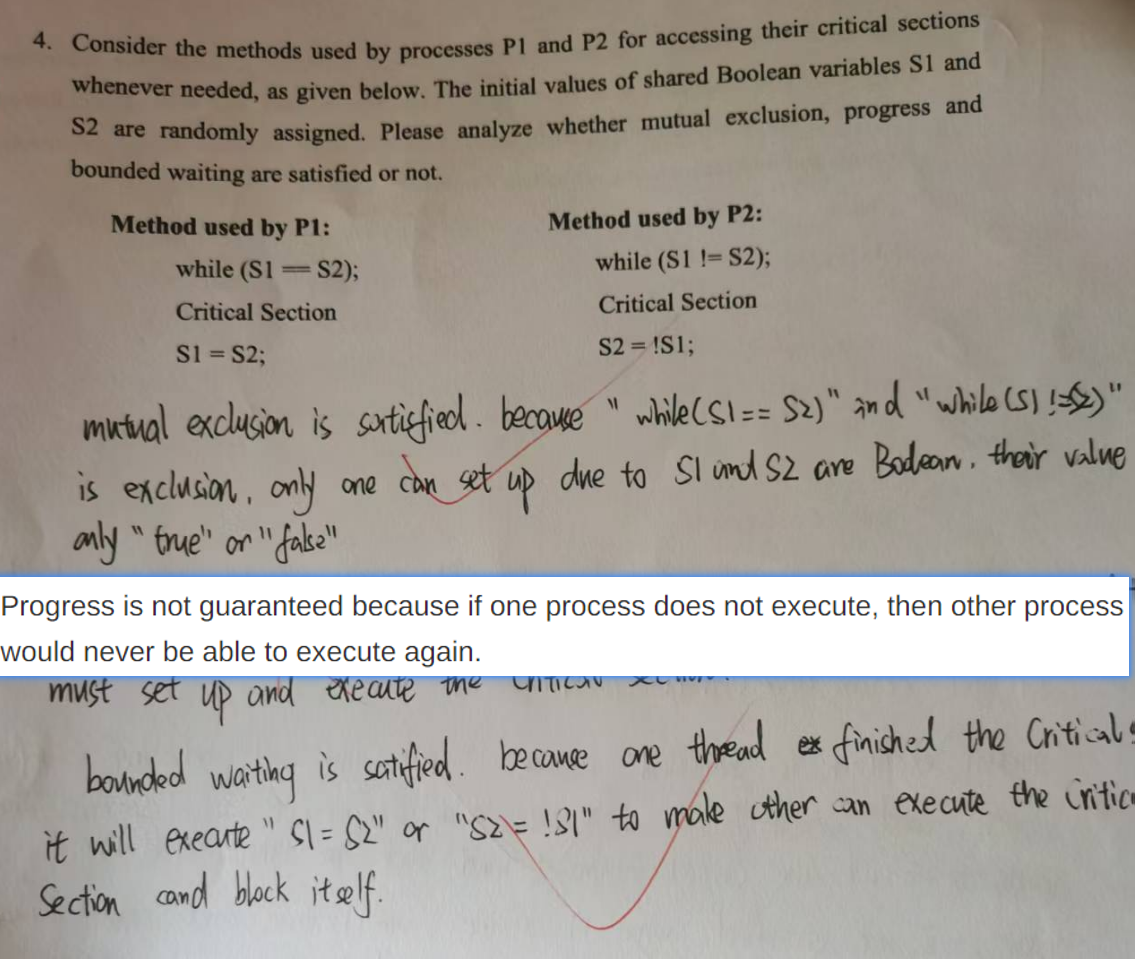 4. Consider the methods used by processes P1 and P2 for accessing their critical sections
whenever needed, as given below. The initial values of shared Boolean variables S1 and
S2 are randomly assigned. Please analyze whether mutual exclusion, progress and
bounded waiting are satisfied or not.
Method used by P1:
while (S1 == S2);
Critical Section
S1 = S2;
Method used by P2:
while (S1 != S2);
Critical Section
S2 = !S1;
mutual exclusion is satisfied. because "while(S1 == S2)" and "while(S1 != S2)"
is exclusion, only one can set up due to S1 and S2 are Boolean, their value
only "true" or "false"
Progress is not guaranteed because if one process does not execute, then other process
would never be able to execute again.
must set up and execute the critical
bounded waiting is satified. because one thread finished the Critical
it will execute "S1 = S2" or "S2 = !S1" to make other can execute the
Section and block itself.